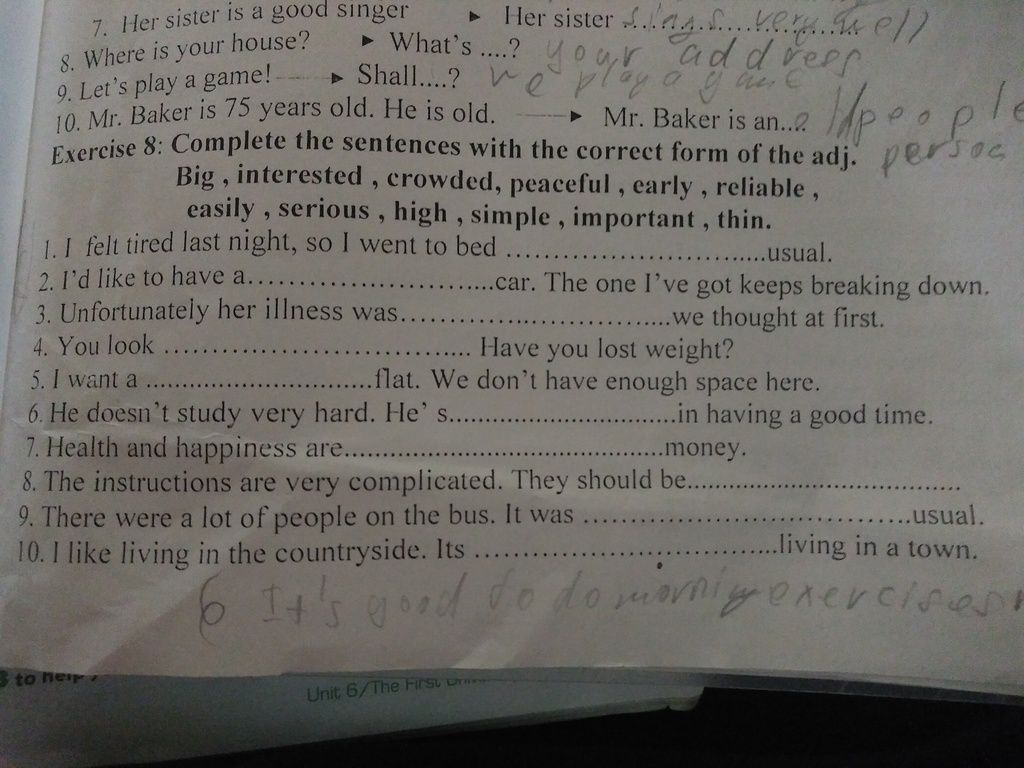 7. Her sister is a good singer ► Her sister sings very well
8. Where is your house? ► What's ....? your address
9. Let's play a game! ► Shall....? we play a game
10. Mr. Baker is 75 years old. He is old. ► Mr. Baker is an... people
person
Exercise 8: Complete the sentences with the correct form of the adj.
Big , interested , crowded, peaceful , early , reliable ,
easily , serious , high , simple , important , thin.
1. I felt tired last night, so I went to bed ..............................usual.
2. I'd like to have a.............................car. The one I've got keeps breaking down.
3. Unfortunately her illness was..................................we thought at first.
4. You look .................................. Have you lost weight?
5. I want a ..............................flat. We don't have enough space here.
6. He doesn't study very hard. He' s..............................in having a good time.
7. Health and happiness are..........................................money.
8. The instructions are very complicated. They should be....................................
9. There were a lot of people on the bus. It was ..........................................usual.
10. I like living in the countryside. Its ........................................living in a town.
6 It's good to do morning exercises
to help
Unit 6/The First